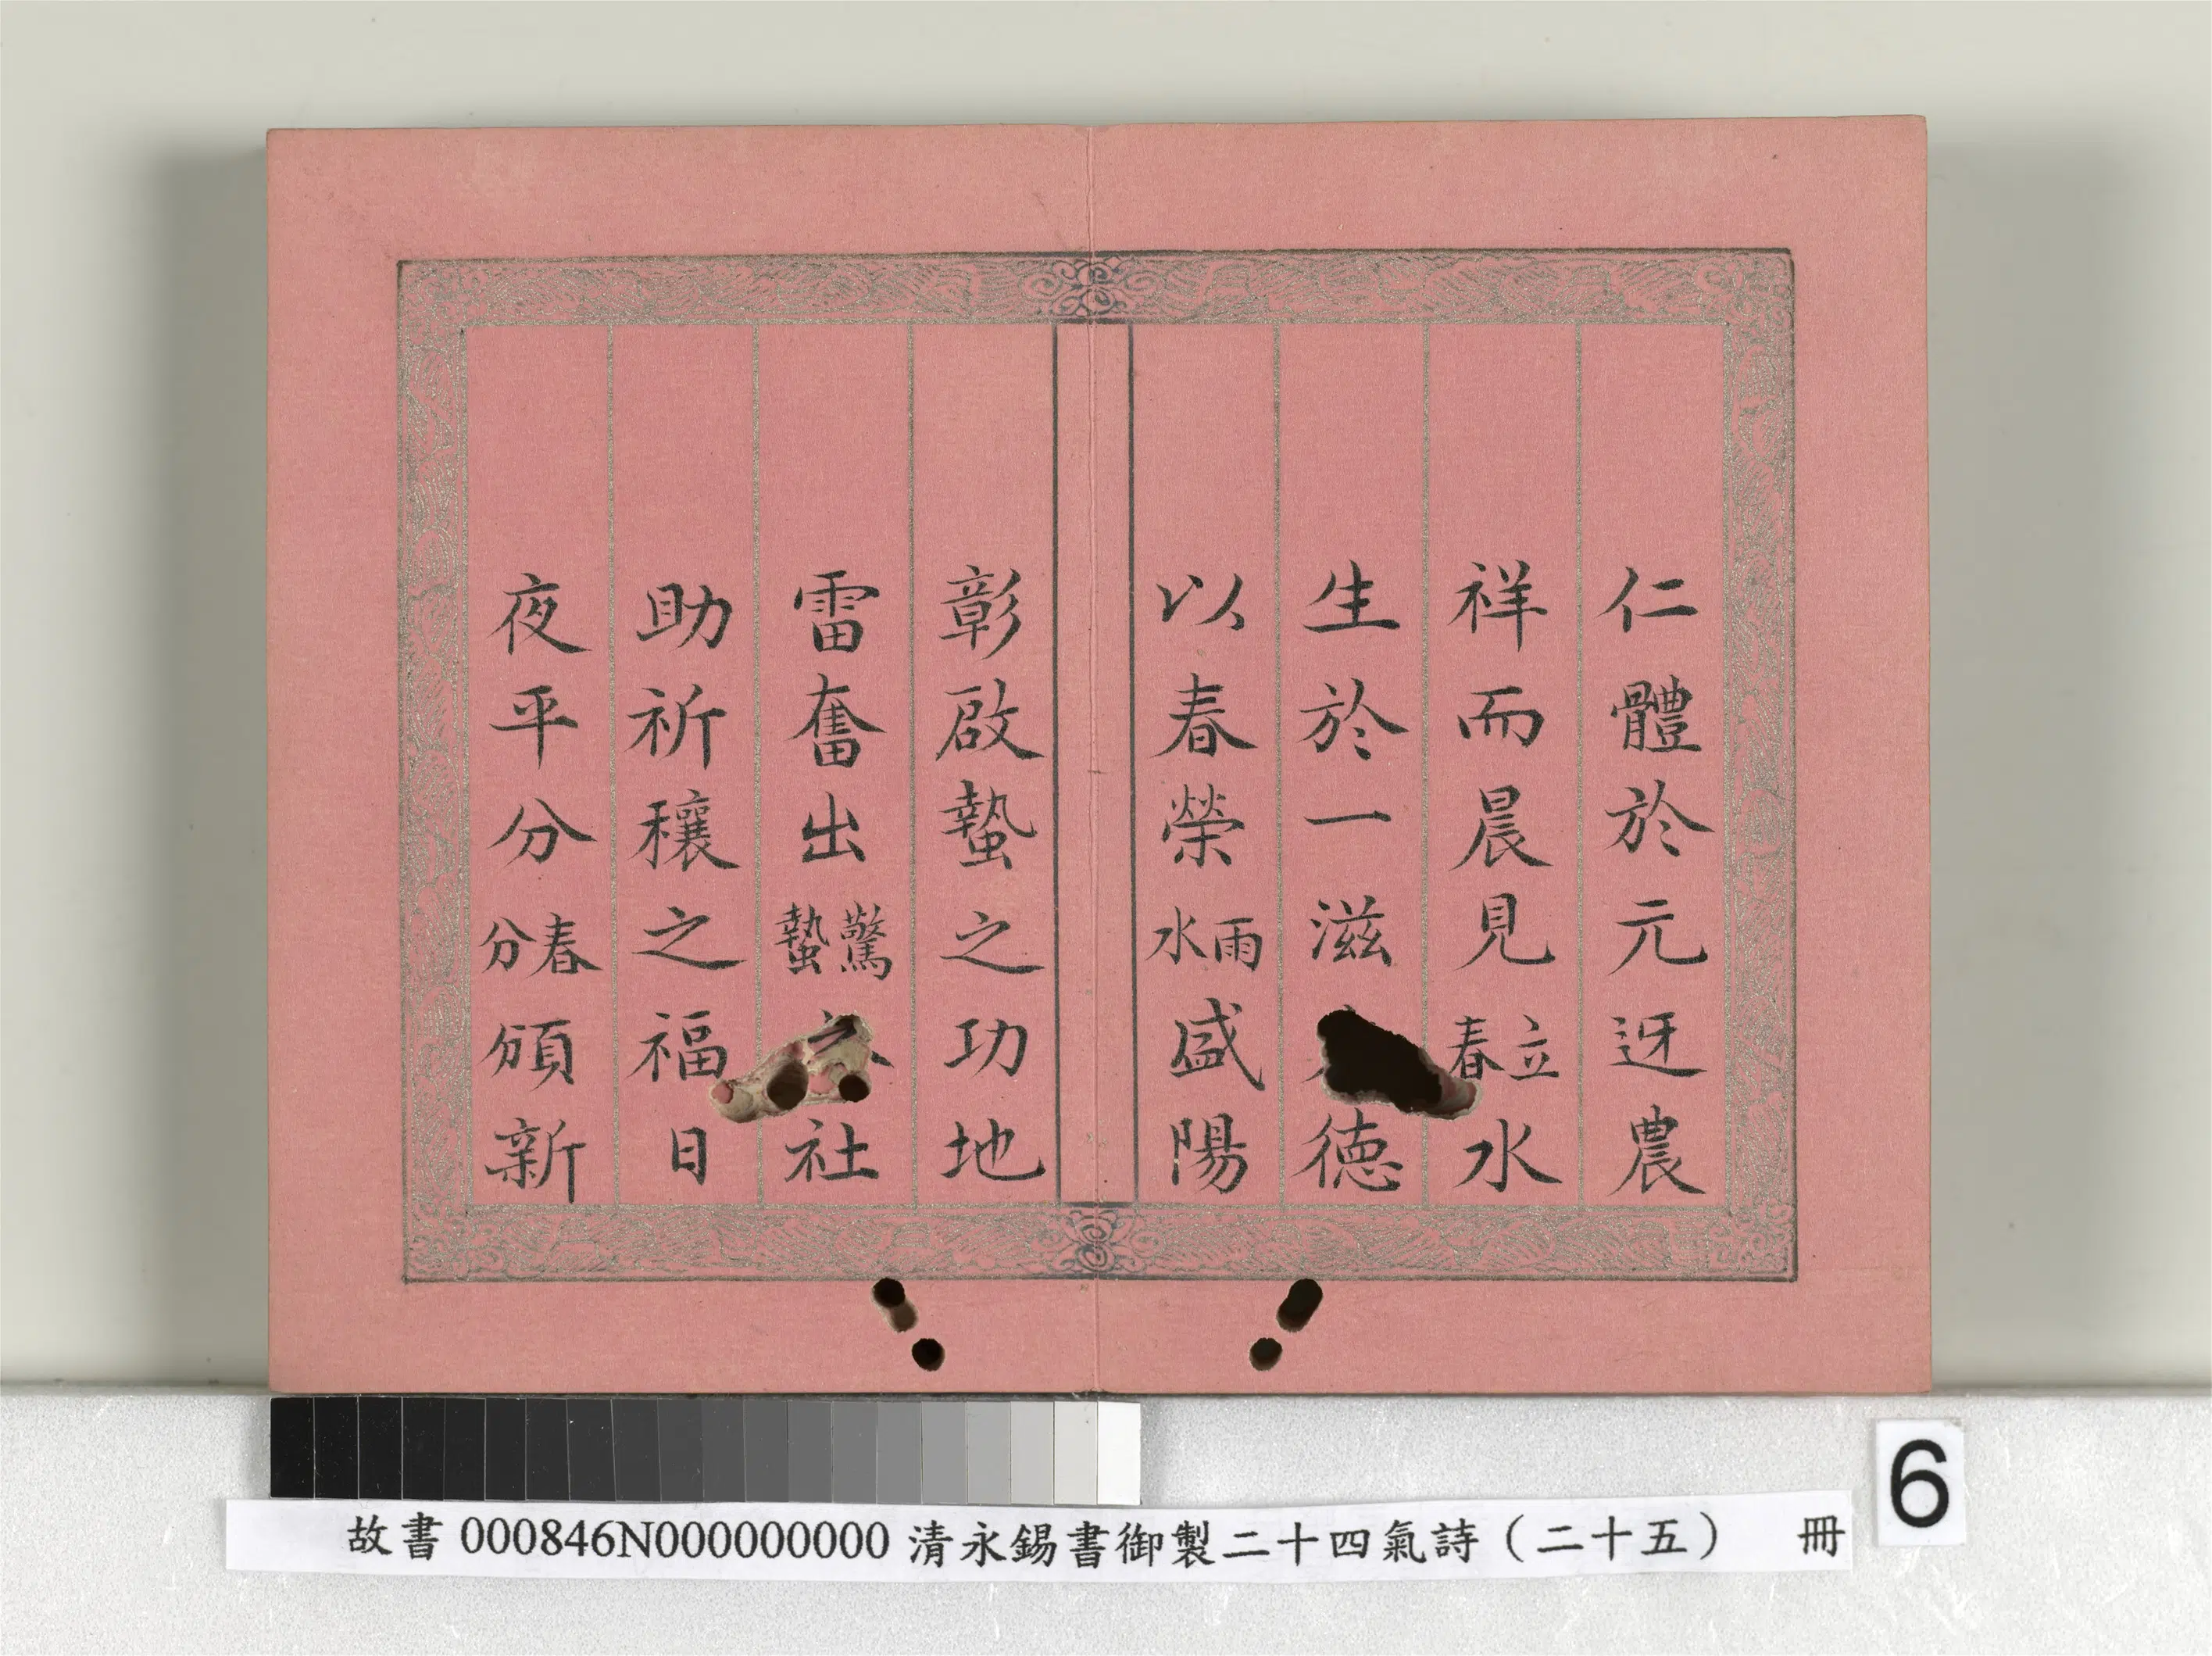 仁體於元迓農
祥而晨見立春水
生於一滋德
以春榮雨水盛陽
彰啟蟄之功地
雷奮出驚蟄社
助祈穰之福日
夜平分春分頒新
6
故書 000846N000000000 清永錫書御製二十四氣詩（二十五） 冊